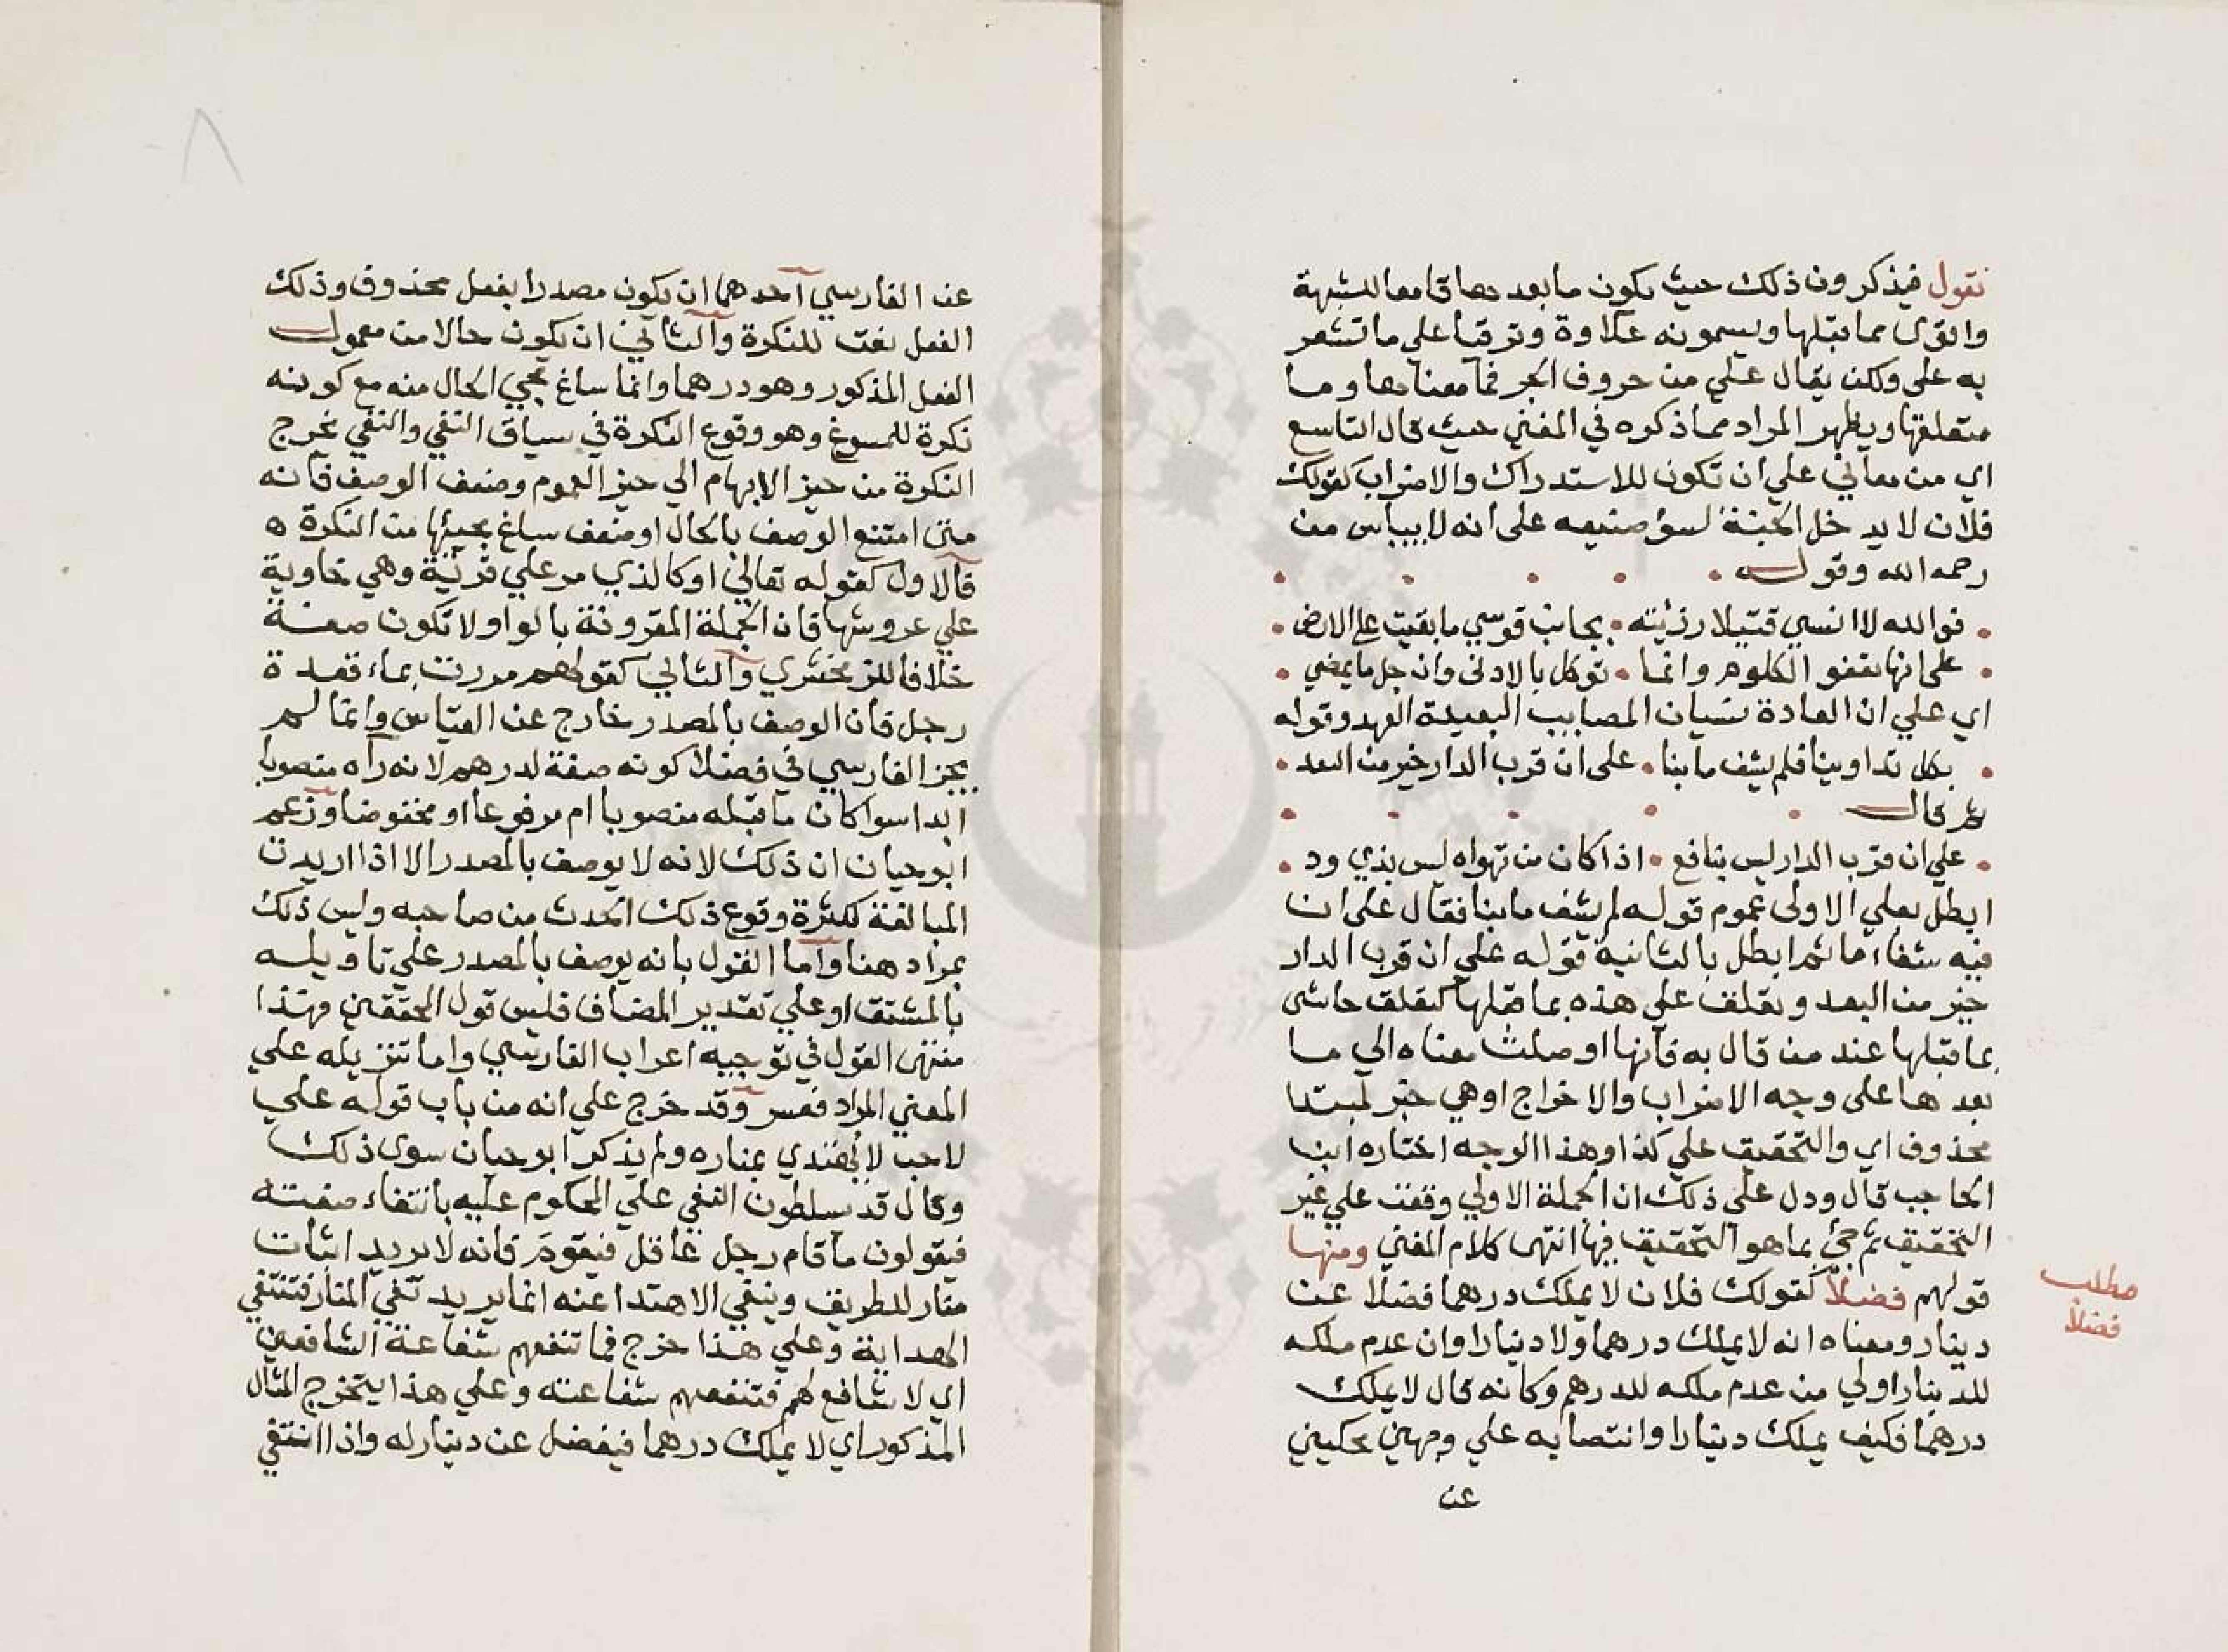 نقول فيذكرون ذلك حيث يكون ما بعدها قامعا للشبهة
واقوى مما قبلها ويسمونه علاوة وترقيا على ما تشعر
به على ولكن يقال علي من حروف الجر فما معناها وما
متعلقها ويظهر المراد مما ذكره في المغني حيث قال التاسع
اي من معاني علي ان تكون للاستدراك والاضراب كقولك
فلان لا يدخل الجنة لسؤ صنيعه على انه لا يياس من
رحمه الله وقول
فوالله لا انسي قتيلا رزئيته بجانب قوسي ما بقيت علي الارض
على انها تعفو الكلوم وانما توكل بالادنى وان جل ما يمضي
اي علي ان العادة نسيان المصايب البعيدة العهد وقوله
بكل تداوينا فلم يشف ما بنا على ان قرب الدار خير من البعد
ثم قال
علي ان قرب الدار ليس بنافع اذا كان من تهواه ليس بذي ود
ابطل بعلي الاولى عموم قوله لم يشف ما بنا فقال على ان
فيه شفاء ما ثم ابطل بالثانية قوله علي ان قرب الدار
خير من البعد وتعلق على هذه بما قبلها كتعلق حاشى
بما قبلها عند من قال به فانها اوصلت معناه الي ما
بعدها على وجه الاضراب والاخراج او هي خبر لمبتدا
محذوف اي والتحقيق علي كذا وهذا الوجه اختاره ابن
الحاجب قال ودل على ذلك ان الجملة الاولي وقعت علي غير
التحقيق ثم جئ بما هو التحقيق فيها انتهى كلام المغني ومنها
قولهم فضلا كقولك فلان لا يملك درهما فضلا عن
دينار ومعناه انه لا يملك درهما ولا دينارا وان عدم ملكه
للدينار اولي من عدم ملكه للدرهم وكانه قال لا يملك
درهما فكيف يملك دينارا وانتصابه علي وجهين محكيين
عن
مطلب
فضلا
عند الفارسي احدهما ان يكون مصدرا بفعل محذوف وذلك
الفعل نعت للنكرة والثاني ان يكون حالا من معمول
الفعل المذكور وهو درهما وانما ساغ مجي الحال منه مع كونه
نكرة للمسوغ وهو وقوع النكرة في سياق النفي والنفي يخرج
النكرة من حيز الابهام الي حيز العموم وضعف الوصف فانه
متى امتنع الوصف بالحال او ضعف ساغ مجيئها من النكرة ه
فالاول كقوله تعالى او كالذي مر علي قرية وهي خاوية
علي عروشها فان الجملة المقرونة بالواو لا تكون صفة
خلافا للزمخشري والثاني كقولهم مررت بماء قعدة
رجل فان الوصف بالمصدر خارج عن القياس وانما لم
يجز الفارسي في فضلا كونه صفة لدرهم لانه رآه منصوبا
ابدا سوا كان ما قبله منصوبا ام مرفوعا او مخفوضا وزعم
ابو حيان ان ذلك لانه لا يوصف بالمصدر الا اذا اريدت
المبالغة لكثرة وقوع ذلك الحدث من صاحبه وليس ذلك
بمراد هنا واما القول بانه يوصف بالمصدر علي تاويله
بالمشتق او علي تقدير المضاف فليس قول المحققين فهذا
منتهى القول في توجيه اعراب الفارسي واما تنزيله علي
المعني المراد فعسر وقد خرج علي انه من باب قوله علي
لاحب لا يهتدي بمناره ولم يذكر ابو حيان سوى ذلك
وقال قد يسلطون النفي علي المحكوم عليه بانتفاء صفته
فيقولون ما قام رجل عاقل فيقوم فانه لا يريد اثبات
منار للطريق وينفي الاهتدا عنه انما يريد نفي المنار فتنتفي
الهداية وعلي هذا خرج فما تنفعهم شفاعة الشافعين
اي لا شافع لهم فتنفعهم شفاعته وعلي هذا يتخرج المثال
المذكور اي لا يملك درهما فيفضل عن دينار له واذا انتفي
٨